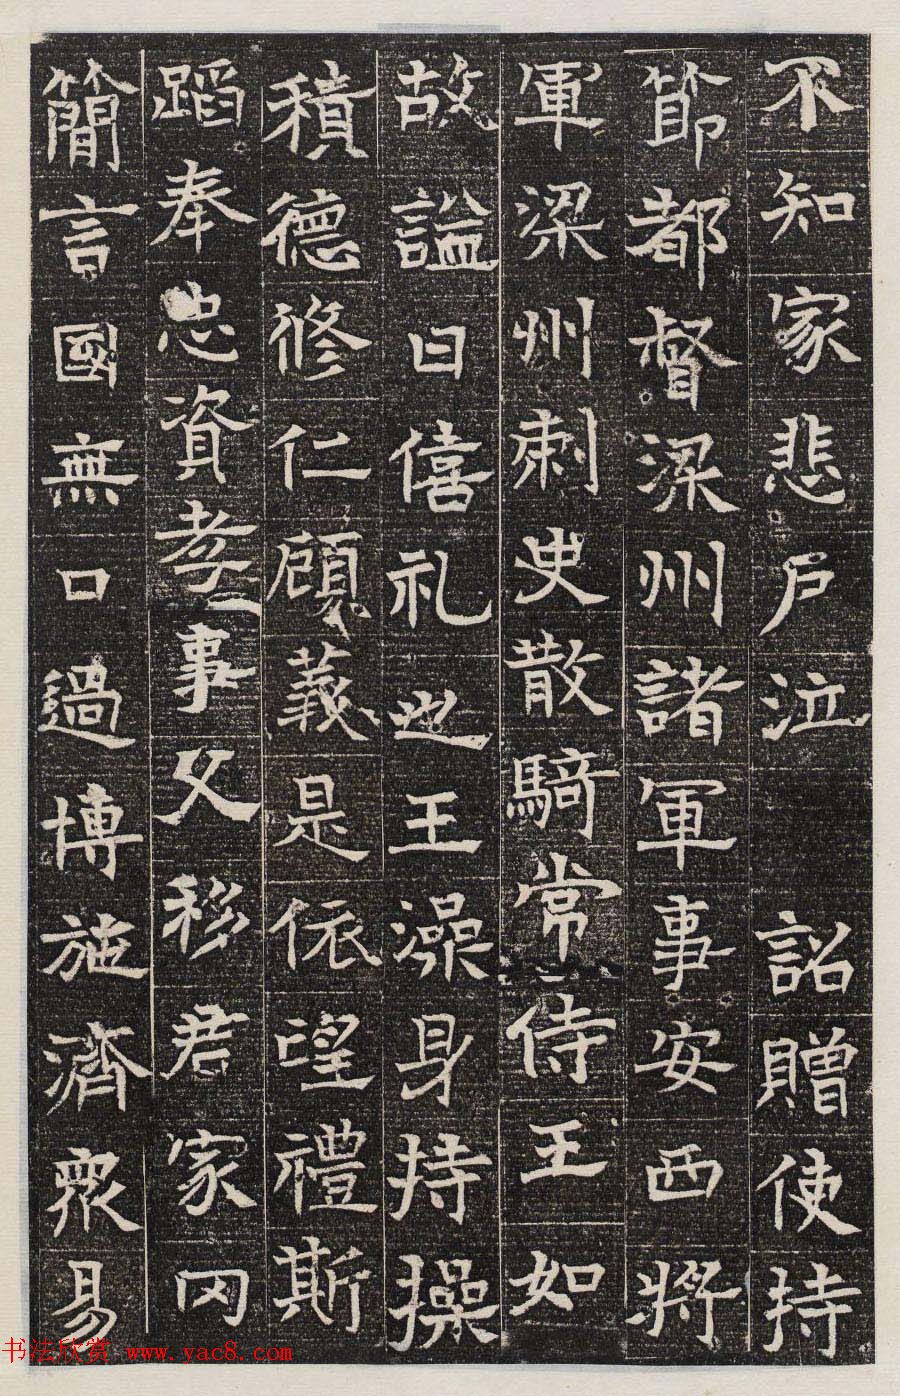 不知家悲户泣 詔贈使持
節都督梁州諸軍事安西將
軍梁州刺史散騎常侍王如
故諡曰僖礼也王澡身持操
積德修仁顧義是依望禮斯
蹈奉忠資孝事父移君家冈
簡言國無口過博施濟衆易
书法欣赏 www.yac8.com